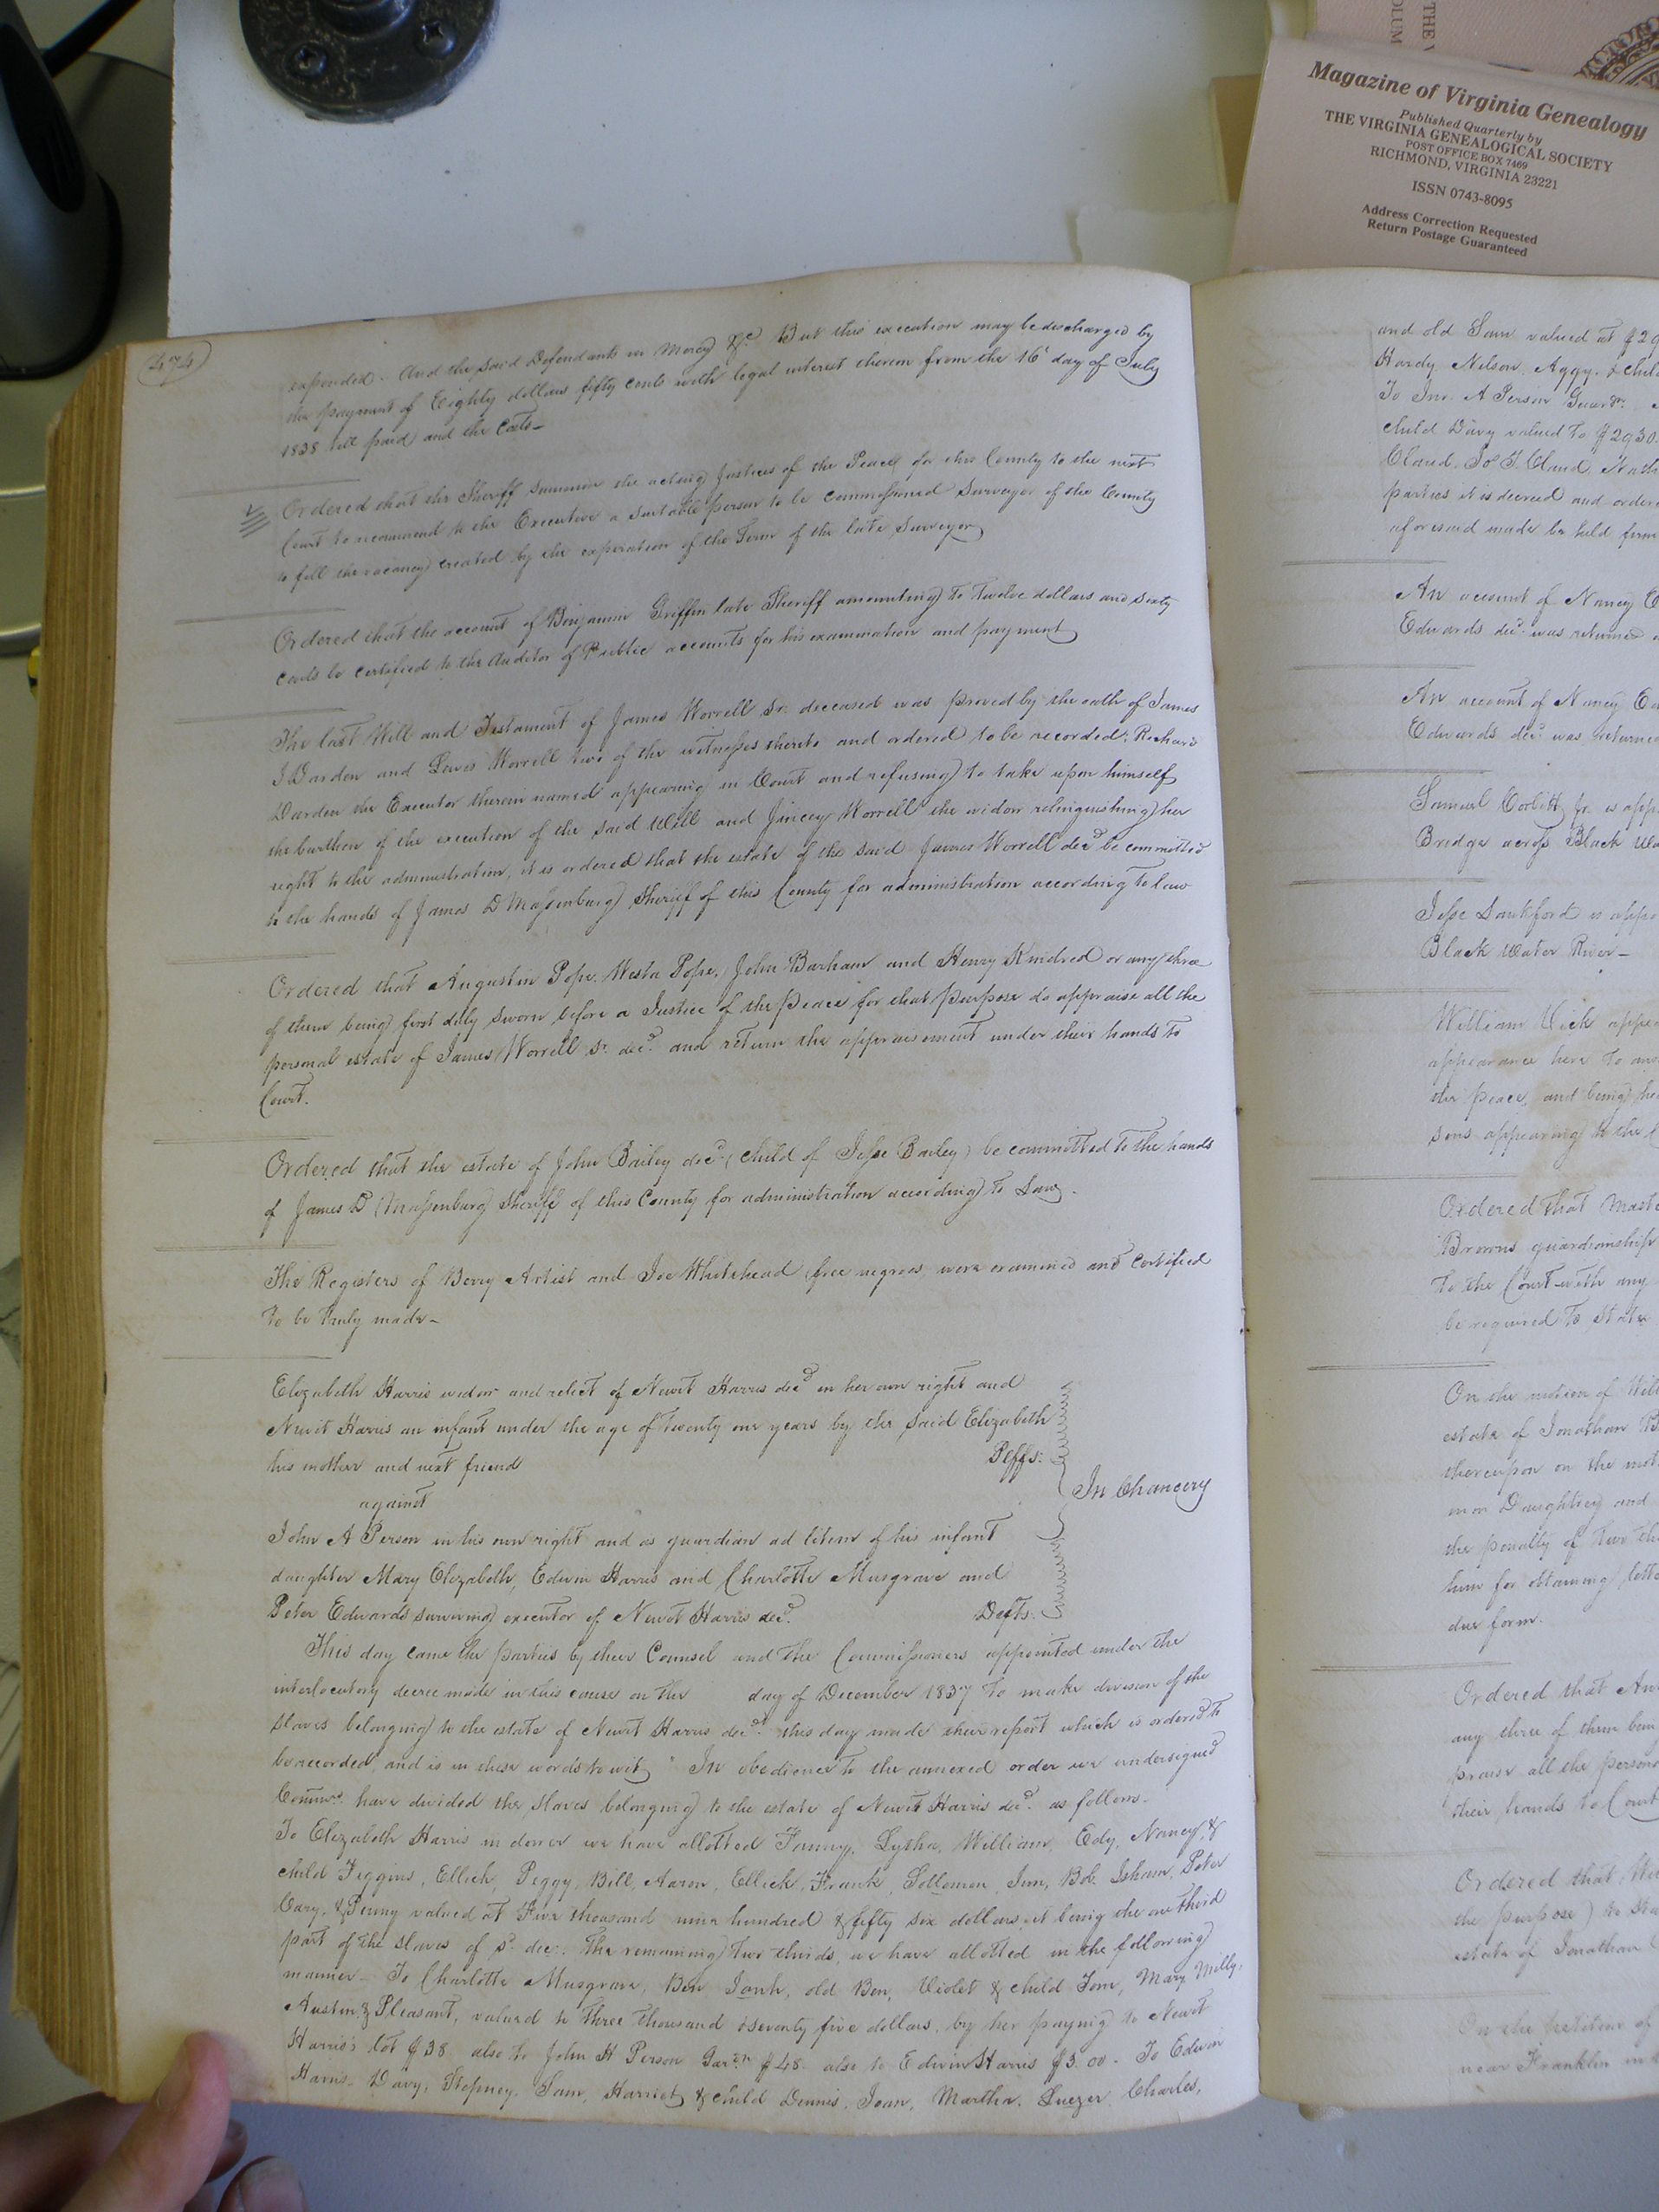 THE V
OLUM
Magazine of Virginia Genealogy
Published Quarterly by
THE VIRGINIA GENEALOGICAL SOCIETY
POST OFFICE BOX 7469
RICHMOND, VIRGINIA 23221
ISSN 0743-8095
Address Correction Requested
Return Postage Guaranteed
474
expended. And the said Defendants in Mercy &c But this execution may be discharged by
the payment of Eighty dollars fifty cents with legal interest thereon from the 16t day of July
1838 till paid and the Costs
Ordered that the Sheriff summon the acting Justices of the Peace for this County to the next
Court to recommend to the Executive a suitable person to be commissioned Surveyor of the County
to fill the vacancy created by the expiration of the Term of the late Surveyor
Ordered that the account of Benjamin Griffin late Sheriff amounting to Twelve dollars and sixty
cents be certified to the Auditor of Public accounts for his examination and payment
The last Will and Testament of James Worrell Sr. deceased was proved by the oath of James
J Darden and Lewis Worrell two of the witnesses thereto and ordered to be recorded; Richard
Darden the Executor therein named appearing in Court and refusing to take upon himself
the burthen of the execution of the said Will and Jincey Worrell the widow relinquishing her
right to the administration, it is ordered that the estate of the said James Worrell decd be committed
to the hands of James D Massenburg Sheriff of this County for administration according to law
Ordered that Augustin Pope, Westa Pope, John Barham and Henry Kindred or any three
of them being first duly sworn before a Justice of the Peace for that purpose do appraise all the
personal estate of James Worrell Sr. decd. and return the appraisement under their hands to
Court.
Ordered that the estate of John Bailey decd. (child of Jesse Bailey) be committed to the hands
of James D Massenburg Sheriff of this County for administration according to Law.
The Registers of Berry Artist and Joe Whitehead free negroes, were examined and certified
to be truly made-
Elizabeth Harris widow and relict of Newit Harris decd in her own right and
Newit Harris an infant under the age of twenty one years by the said Elizabeth
his mother and next friend Plffs:
against In Chancery
John A Person in his own right and as guardian ad litem of his infant
daughter Mary Elizabeth, Edwin Harris and Charlotte Musgrave and
Peter Edwards surviving executor of Newit Harris decd. Defts:
This day came the parties by their Counsel and the Commissioners appointed under the
interlocutory decree made in this cause on the day of December 1837 to make division of the
slaves belonging to the estate of Newit Harris decd. this day made their report which is ordered to
be recorded, and is in these words to wit, " In obedience to the annexed order we undersigned
Commrs. have divided the slaves belonging to the estate of Newit Harris decd. as follows-
To Elizabeth Harris in dower we have allotted Fanny, Lytha, William, Edy, Nancy &
child Figgins, Ellick, Peggy, Bill, Aaron, Ellick, Frank, Sollomon, Jim, Bob, Isham, Peter
Cary, & Penny valued at Five thousand nine hundred & fifty six dollars, it being the one third
part of the slaves of sd. dec: The remaining two thirds, we have allotted in the following
manner - To Charlotte Musgrave, Ben, old Ben, Violet & child Tom, Mary, Milly,
Austin & Pleasant, valued to three thousand & seventy five dollars, by her paying to Newit
Harris's lot $38 also to John A Person $48 also to Edwin Harris $3.00 - To Edwin
Harris - Davy, Stepney, Sam, Harriet & child Dennis, Joan, Martha, Charles,
and old Sam valued at $29
Hardy, Nelson, Aggy, & chil
To Jno. A Person Guardn.
child Davy valued to $2930
Claud, Jos J. Claud, Nath
parties it is decreed and order
aforesaid made be held firm
An account of Nancy E
Edwards decd. was returned
An account of Nancy Ed
Edwards decd. was returned
Samuel Corbitt Jr. is app
Bridge across Black Wa
Jesse Lankford is appo
Black Water River -
William Vick appea
appearance here to ans
the peace, and being he
sons appearing to the C
Ordered that Maste
Browns guardianship
to the Court with any
be required to State
On the motion of Will
estate of Jonathan B
thereupon on the mot
mon Daughtrey and
the penalty of two th
him for obtaining lette
due form.
Ordered that An
any three of them bein
praise all the persona
their hands to Court
Ordered that
the purpose) to sta
estate of Jonathan
On the petition of
near Franklin